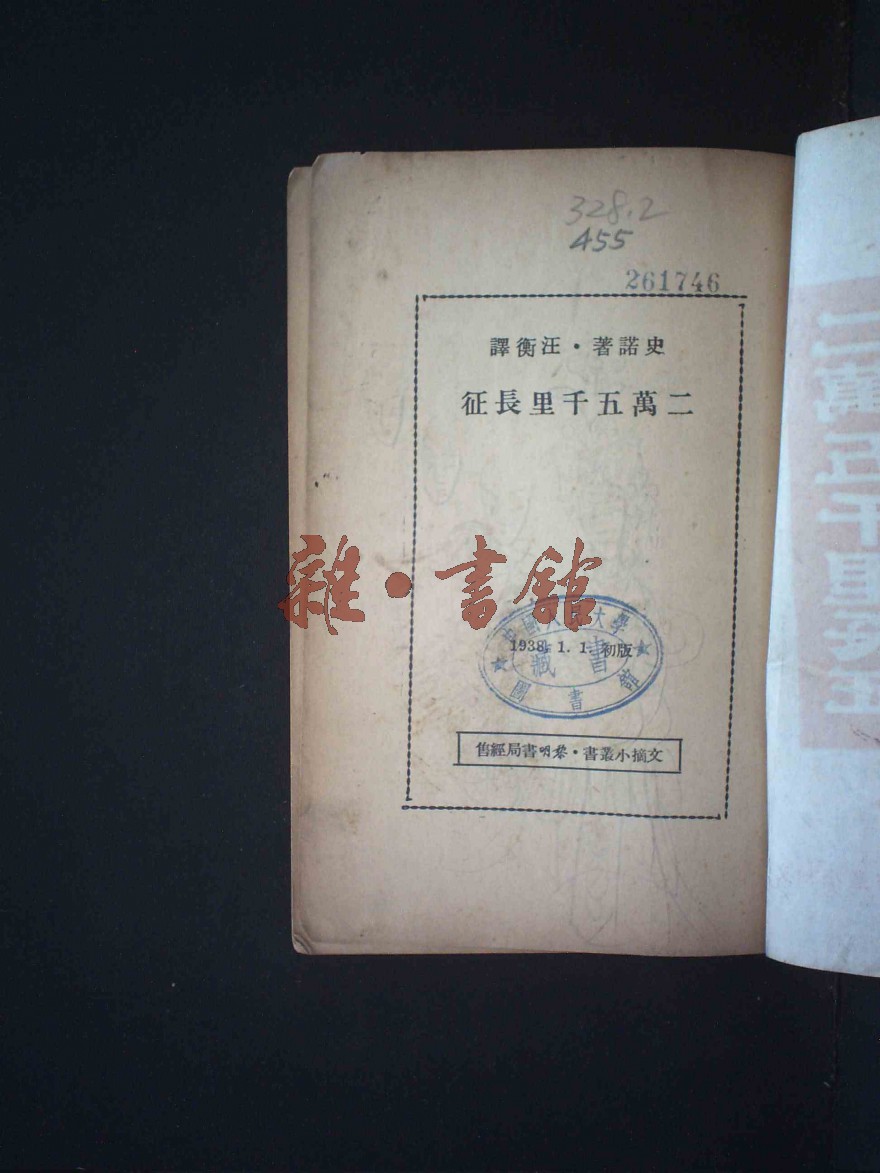 328.2
455
261746
史諾著・汪衡譯
二萬五千里長征
雜・書館
中國人民大學
1938. 1. 1. 初版
藏書
圖書館
文摘小叢書・黎明書局經售
二萬五千里長征